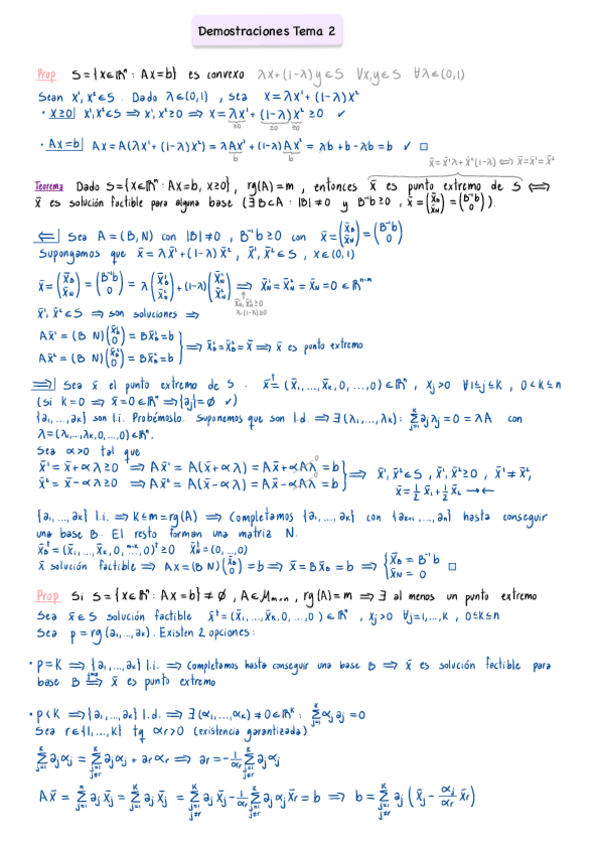 Demostraciones Tema 2
Prop S={x∈ℝⁿ: Ax=b} es convexo λx+(1-λ)y∈S ∀x,y∈S ∀λ∈(0,1)
Sean x¹, x²∈S. Dado λ∈(0,1), sea x=λx¹+(1-λ)x²
• x≥0| x¹,x²∈S ⟹ x¹,x²≥0 ⟹ x=λx¹+(1-λ)x² ≥0 ✓
≥0 ≥0 ≥0
• Ax=b| Ax=A(λx¹+(1-λ)x²)=λAx¹+(1-λ)Ax²=λb+b-λb=b ✓ □
b b
x̄=x̄¹λ+x̄²(1-λ) ⟺ x̄=x̄¹=x̄²
Teorema Dado S={x∈ℝⁿ: Ax=b, x≥0}, rg(A)=m, entonces x̄ es punto extremo de S ⟺
x̄ es solución factible para alguna base (∃B⊂A: |B|≠0 y B⁻¹b≥0, x̄=(x̄_B x̄_N)=(B⁻¹b 0)).
⟸| Sea A=(B,N) con |B|≠0, B⁻¹b≥0 con x̄=(x̄_B x̄_N)=(B⁻¹b 0)
Supongamos que x̄=λx̄¹+(1-λ)x̄², x̄¹,x̄²∈S, x∈(0,1)
x̄=(x̄_B x̄_N)=(B⁻¹b 0)=λ(x̄¹_B x̄¹_N)+(1-λ)(x̄²_B x̄²_N) ⟹ x̄¹_N=x̄²_N=x̄_N=0∈ℝⁿ⁻ᵐ
x̄¹_N, x̄²_N≥0
λ,(1-λ)≥0
x̄¹,x̄²∈S ⟹ son soluciones ⟹
Ax̄¹=(B N)(x̄¹_B 0)=Bx̄¹_B=b
Ax̄²=(B N)(x̄²_B 0)=Bx̄²_B=b } ⟹ x̄¹_B=x̄²_B=x̄ ⟹ x̄ es punto extremo
⟹| Sea x̄ el punto extremo de S. x̄ᵗ=(x̄₁,...,x̄ₖ,0,...,0)∈ℝⁿ, xⱼ>0 ∀1≤j≤k, 0<k≤n
(si k=0 ⟹ x̄=0∈ℝⁿ ⟹ {aⱼ}=∅ ✓)
{a₁,...,aₖ} son l.i. Probémoslo. Suponemos que son l.d. ⟹ ∃(λ₁,...,λₖ): Σⱼ₌₁ᵏ aⱼλⱼ=0=λA con
λ=(λ₁,...,λₖ,0,...,0)∈ℝⁿ.
Sea α>0 tal que
x̄¹=x̄+αλ≥0 ⟹ Ax̄¹=A(x̄+αλ)=Ax̄+αAλ=b
x̄²=x̄-αλ≥0 ⟹ Ax̄²=A(x̄-αλ)=Ax̄-αAλ=b } ⟹ x̄¹,x̄²∈S, x̄¹,x̄²≥0, x̄¹≠x̄²,
x̄=½x̄₁+½x̄₂ →←
{a₁,...,aₖ} l.i. ⟹ k≤m=rg(A) ⟹ Completamos {a₁,...,aₖ} con {aₖ₊₁,...,aₙ} hasta conseguir
una base B. El resto forman una matriz N.
x̄_Bᵗ=(x̄₁,...,x̄ₖ,0,...,0)ᵗ≥0 x̄_Nᵗ=(0,...,0)
x̄ solución factible ⟹ Ax=(B N)(x̄_B 0)=b ⟹ x̄=Bx̄_B=b ⟹ {x̄_B=B⁻¹b
x̄_N=0 □
Prop Si S={x∈ℝⁿ: Ax=b}≠∅, A∈Mₘₓₙ, rg(A)=m ⟹ ∃ al menos un punto extremo
Sea x̄∈S solución factible x̄ᵗ=(x̄₁,...,x̄ₖ,0,...,0)∈ℝⁿ, xⱼ>0 ∀j=1,...,k, 0≤k≤n
Sea p=rg(a₁,...,aₖ). Existen 2 opciones:
• p=k ⟹ {a₁,...,aₖ} l.i. ⟹ Completamos hasta conseguir una base B ⟹ x̄ es solución factible para
base B ⟹ x̄ es punto extremo
• p<k ⟹ {a₁,...,aₖ} l.d. ⟹ ∃(α₁,...,αₖ)≠0∈ℝᵏ: Σⱼ₌₁ᵏ αⱼaⱼ=0
Sea r∈{1,...,k} tq αr>0 (existencia garantizada)
Σⱼ₌₁ᵏ aⱼαⱼ=Σⱼ₌₁,ⱼ≠ᵣᵏ aⱼαⱼ+arαr ⟹ ar=-1/αr Σⱼ₌₁,ⱼ≠ᵣᵏ aⱼαⱼ
Ax̄=Σⱼ₌₁ⁿ aⱼx̄ⱼ=Σⱼ₌₁ᵏ aⱼx̄ⱼ=Σⱼ₌₁,ⱼ≠ᵣᵏ aⱼx̄ⱼ-1/αr Σⱼ₌₁,ⱼ≠ᵣᵏ aⱼαⱼx̄r=b ⟹ b=Σⱼ₌₁,ⱼ≠ᵣᵏ aⱼ(x̄ⱼ-αⱼ/αr x̄r)